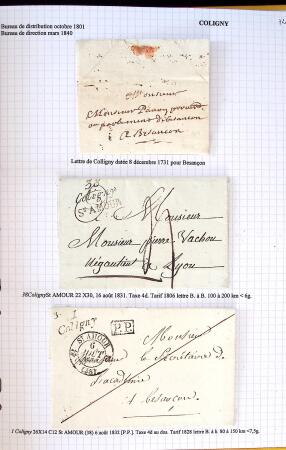 Bureau de distribution octobre 1801
Bureau de direction mars 1840
COLIGNY
Monsieur
Monsieur
au parlement de besancon
a Besancon
Lettre de Colligny datée 8 décembre 1731 pour Besançon
38
Coligny
ST AMOUR
Monsieur
Monsieur pierre Vachou
négotiant
Lyon
38ColignySt AMOUR 22 X30, 16 août 1831. Taxe 4d. Tarif 1806 lettre B. à B. 100 à 200 km < 6g.
1
Coligny
P.P.
ST AMOUR
6
Monsieur
le Secrétaire de
l'académie
besançon
1 Coligny 26X14 C12 St AMOUR (38) 6 août 1832 [P.P.]. Taxe 4d au dos. Tarif 1828 lettre B. à b. 80 à 150 km <7,5g.